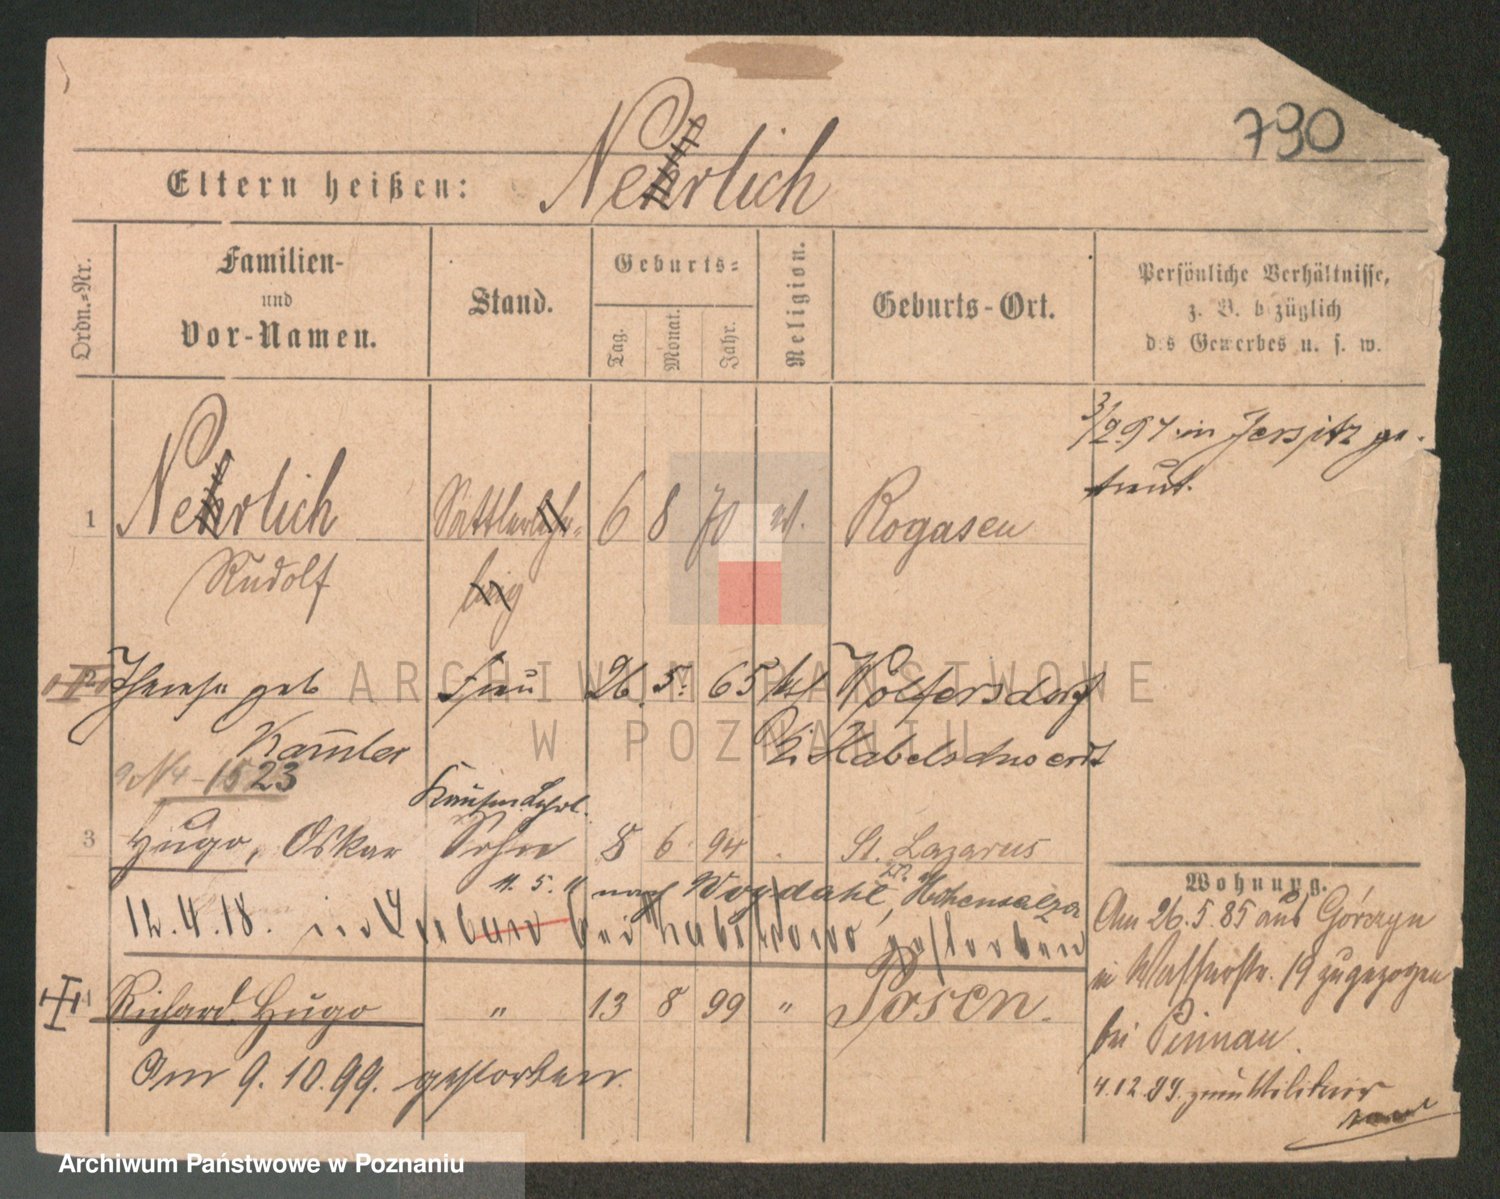 790
Eltern heißen: Nehrlich
Ordn.-Nr.
Familien-
und
Vor-Namen.
Stand.
Geburts-
Tag.
Monat.
Jahr.
Religion.
Geburts-Ort.
Persönliche Verhältnisse,
z. B. bezüglich
des Gewerbes u. s. w.
3/2 97 in Jersitz ge-
traut.
1 Nehrlich Sattlerlehr- 6 8 70 ev. Rogasen
Rudolf ling
2 Therese geb Frau 26. 5. 65 kat Wolfersdorf
Kamler K. Habelschwerdt
1523
Kaufm. Lehrl.
3 Hugo, Oskar Sohn 8 6 94 St. Lazarus
11. 5. 11 nach Wogdahl, Hohensalza
12. 4. 18. in gestorben
4 Richard Hugo " 13 8 99 " Posen.
Am 9. 10. 99. gestorben.
Wohnung.
Am 26. 5. 85 aus Górczyn
in Wasserstr. 19 zugezogen
bei Pinnau.
4.12.89. zum Militair
ARCHIWUM PAŃSTWOWE
W POZNANIU
Archiwum Państwowe w Poznaniu